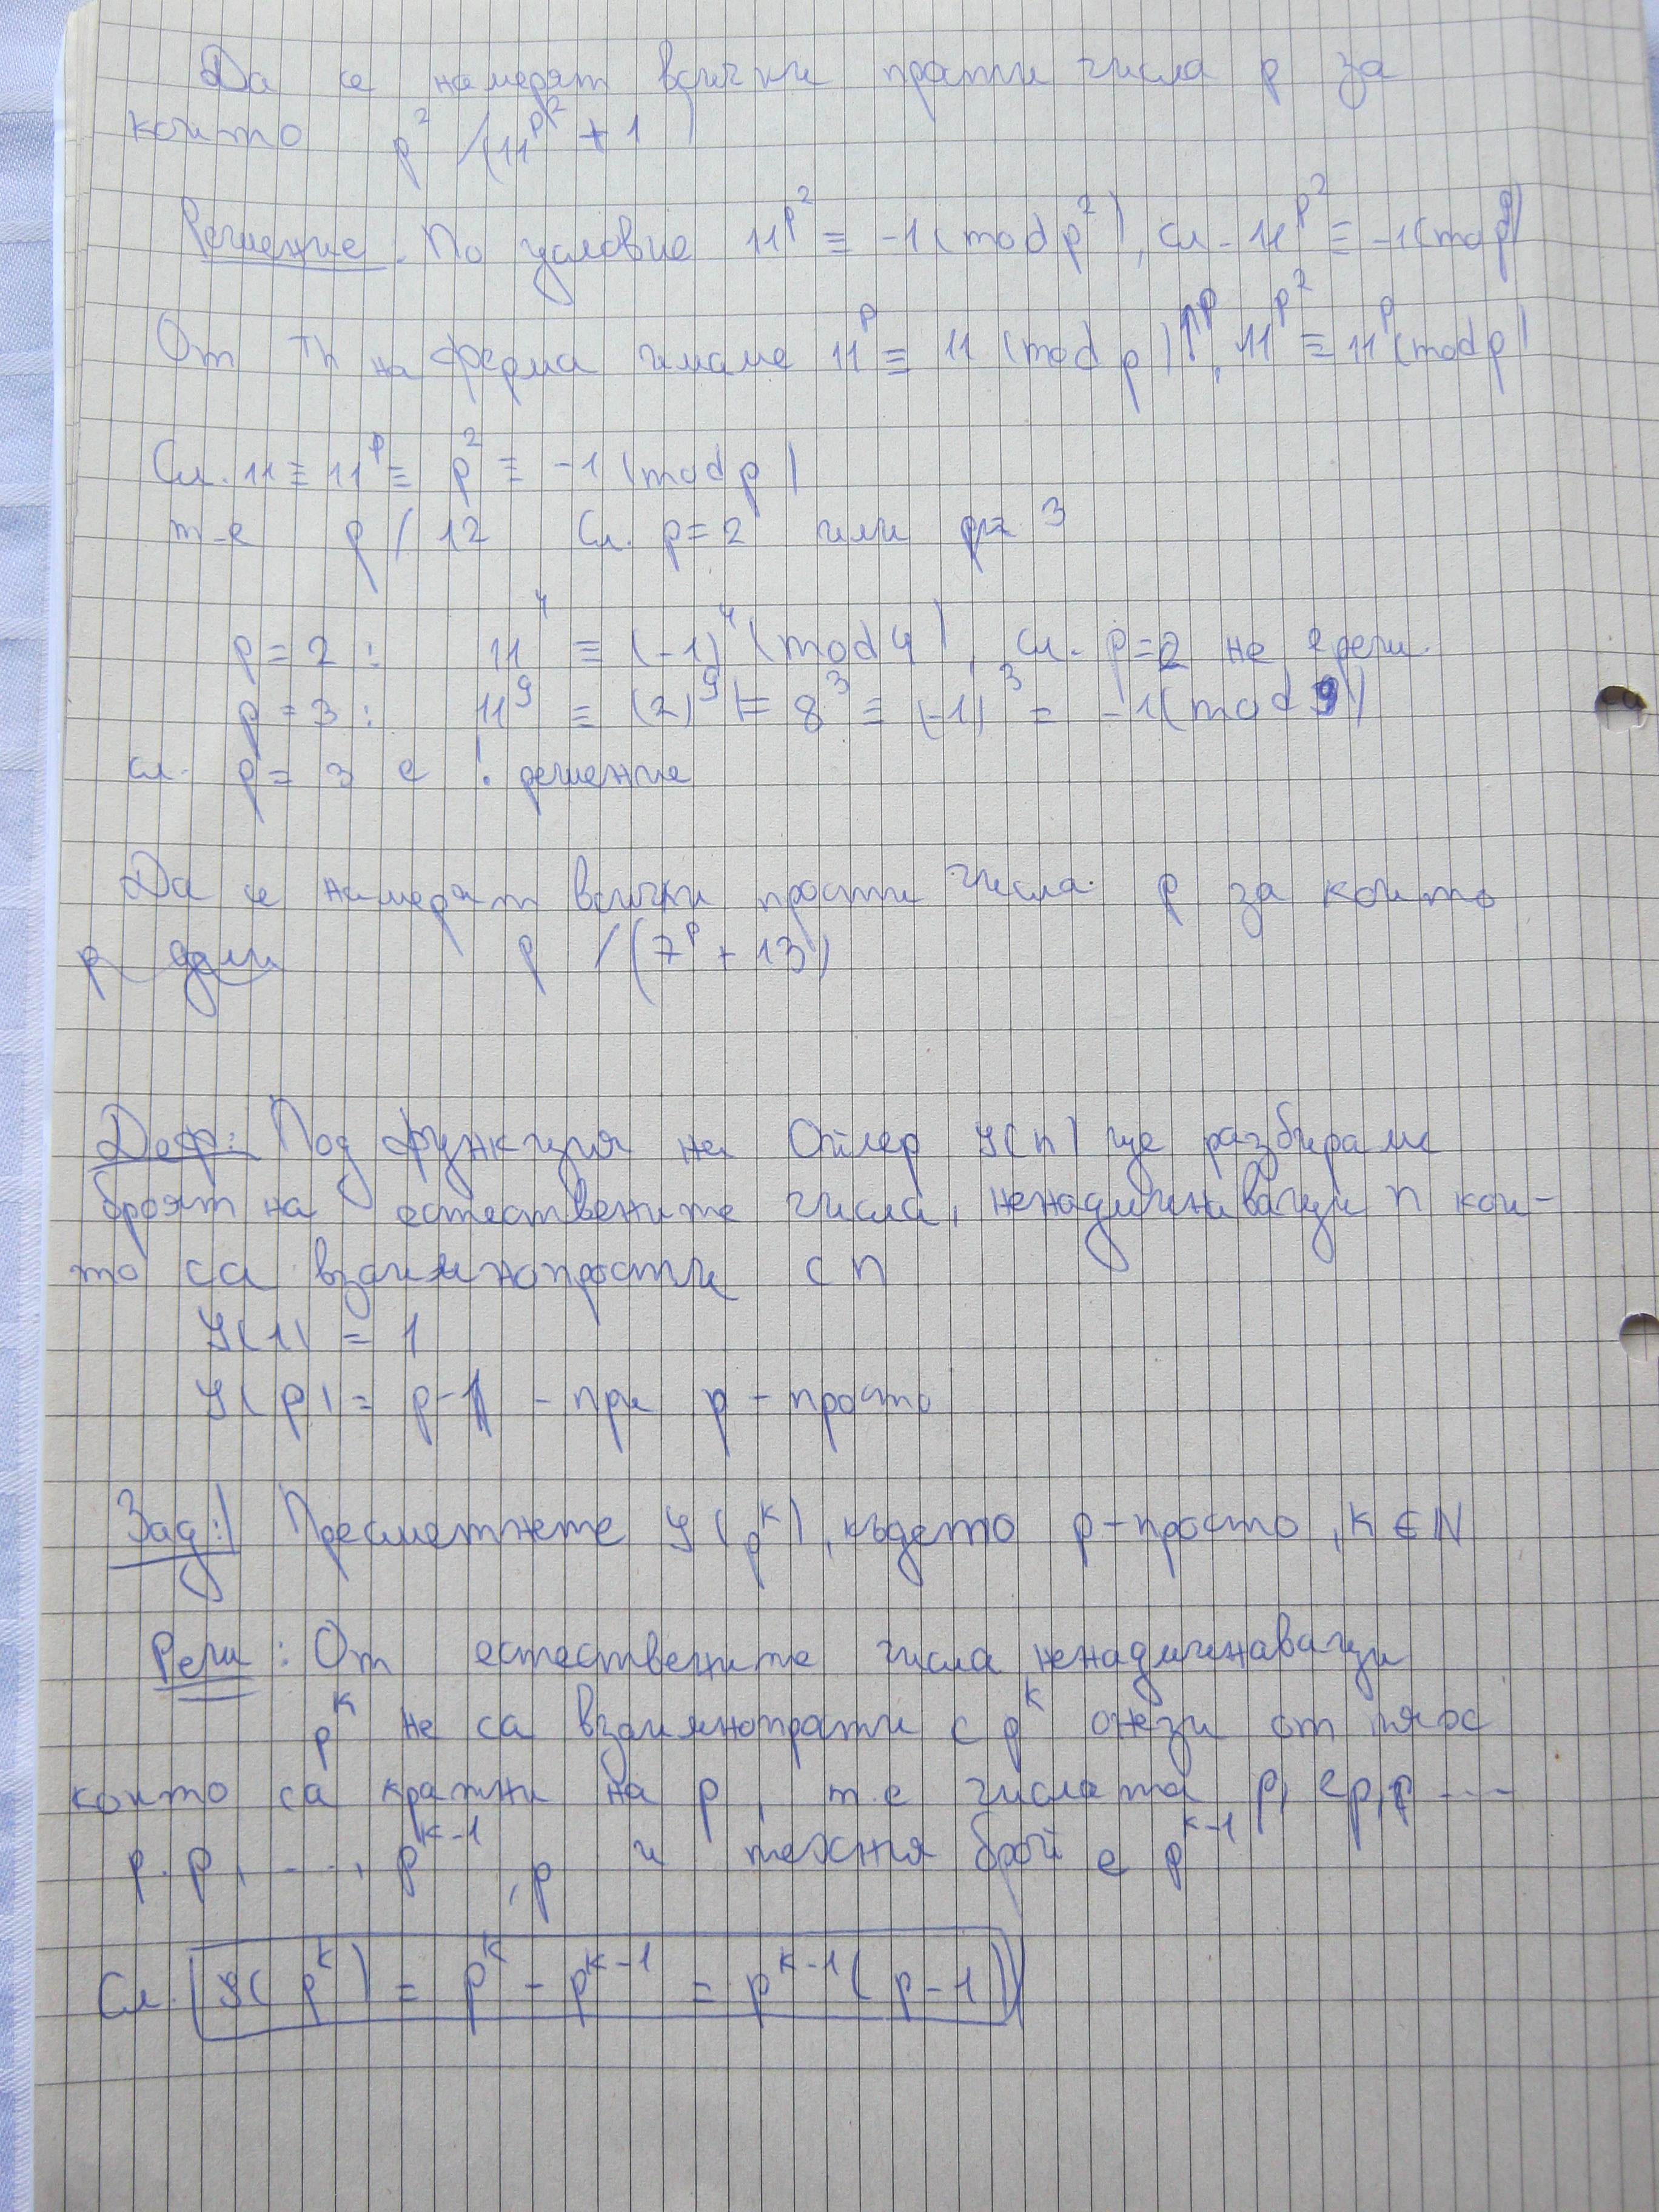 Да се намерят всички прости числа p за
които p² / (11^p² + 1)
Решение. По условие 11^p² ≡ -1 (mod p²), сл. 11^p² ≡ -1 (mod p)
От Th на Ферма имаме 11^p ≡ 11 (mod p) ↑p, 11^p² ≡ 11^p (mod p)
Сл. 11 ≡ 11^p ≡ p² ≡ -1 (mod p)
т-е p / 12 Сл. p = 2 или p = 3
p = 2 : 11⁴ ≡ (-1)⁴ (mod 4), сл. p = 2 не е реш.
p = 3 : 11⁹ ≡ (2)⁹ ≡ 8³ ≡ (-1)³ = -1 (mod 9)
сл. p = 3 е ! решение
Да се намерят всички прости числа p за които
p дели p / (7^p + 13)
Деф: Под функция на Ойлер φ(n) ще разбираме
броят на естествените числа, ненадминаващи n кои-
то са взаимнопрости с n
φ(1) = 1
φ(p) = p-1 - при p - просто
Зад:1 Пресметнете φ(p^k), където p - просто, k ∈ N
Реш: От естествените числа ненадминаващи
p^k не са взаимнопрости с p^k онези от тях
които са кратни на p, т.е числата p, 2p, ...
p.p, ..., p^k-1, p и техния брой е p^k-1
Сл. φ(p^k) = p^k - p^k-1 = p^k-1 (p-1)